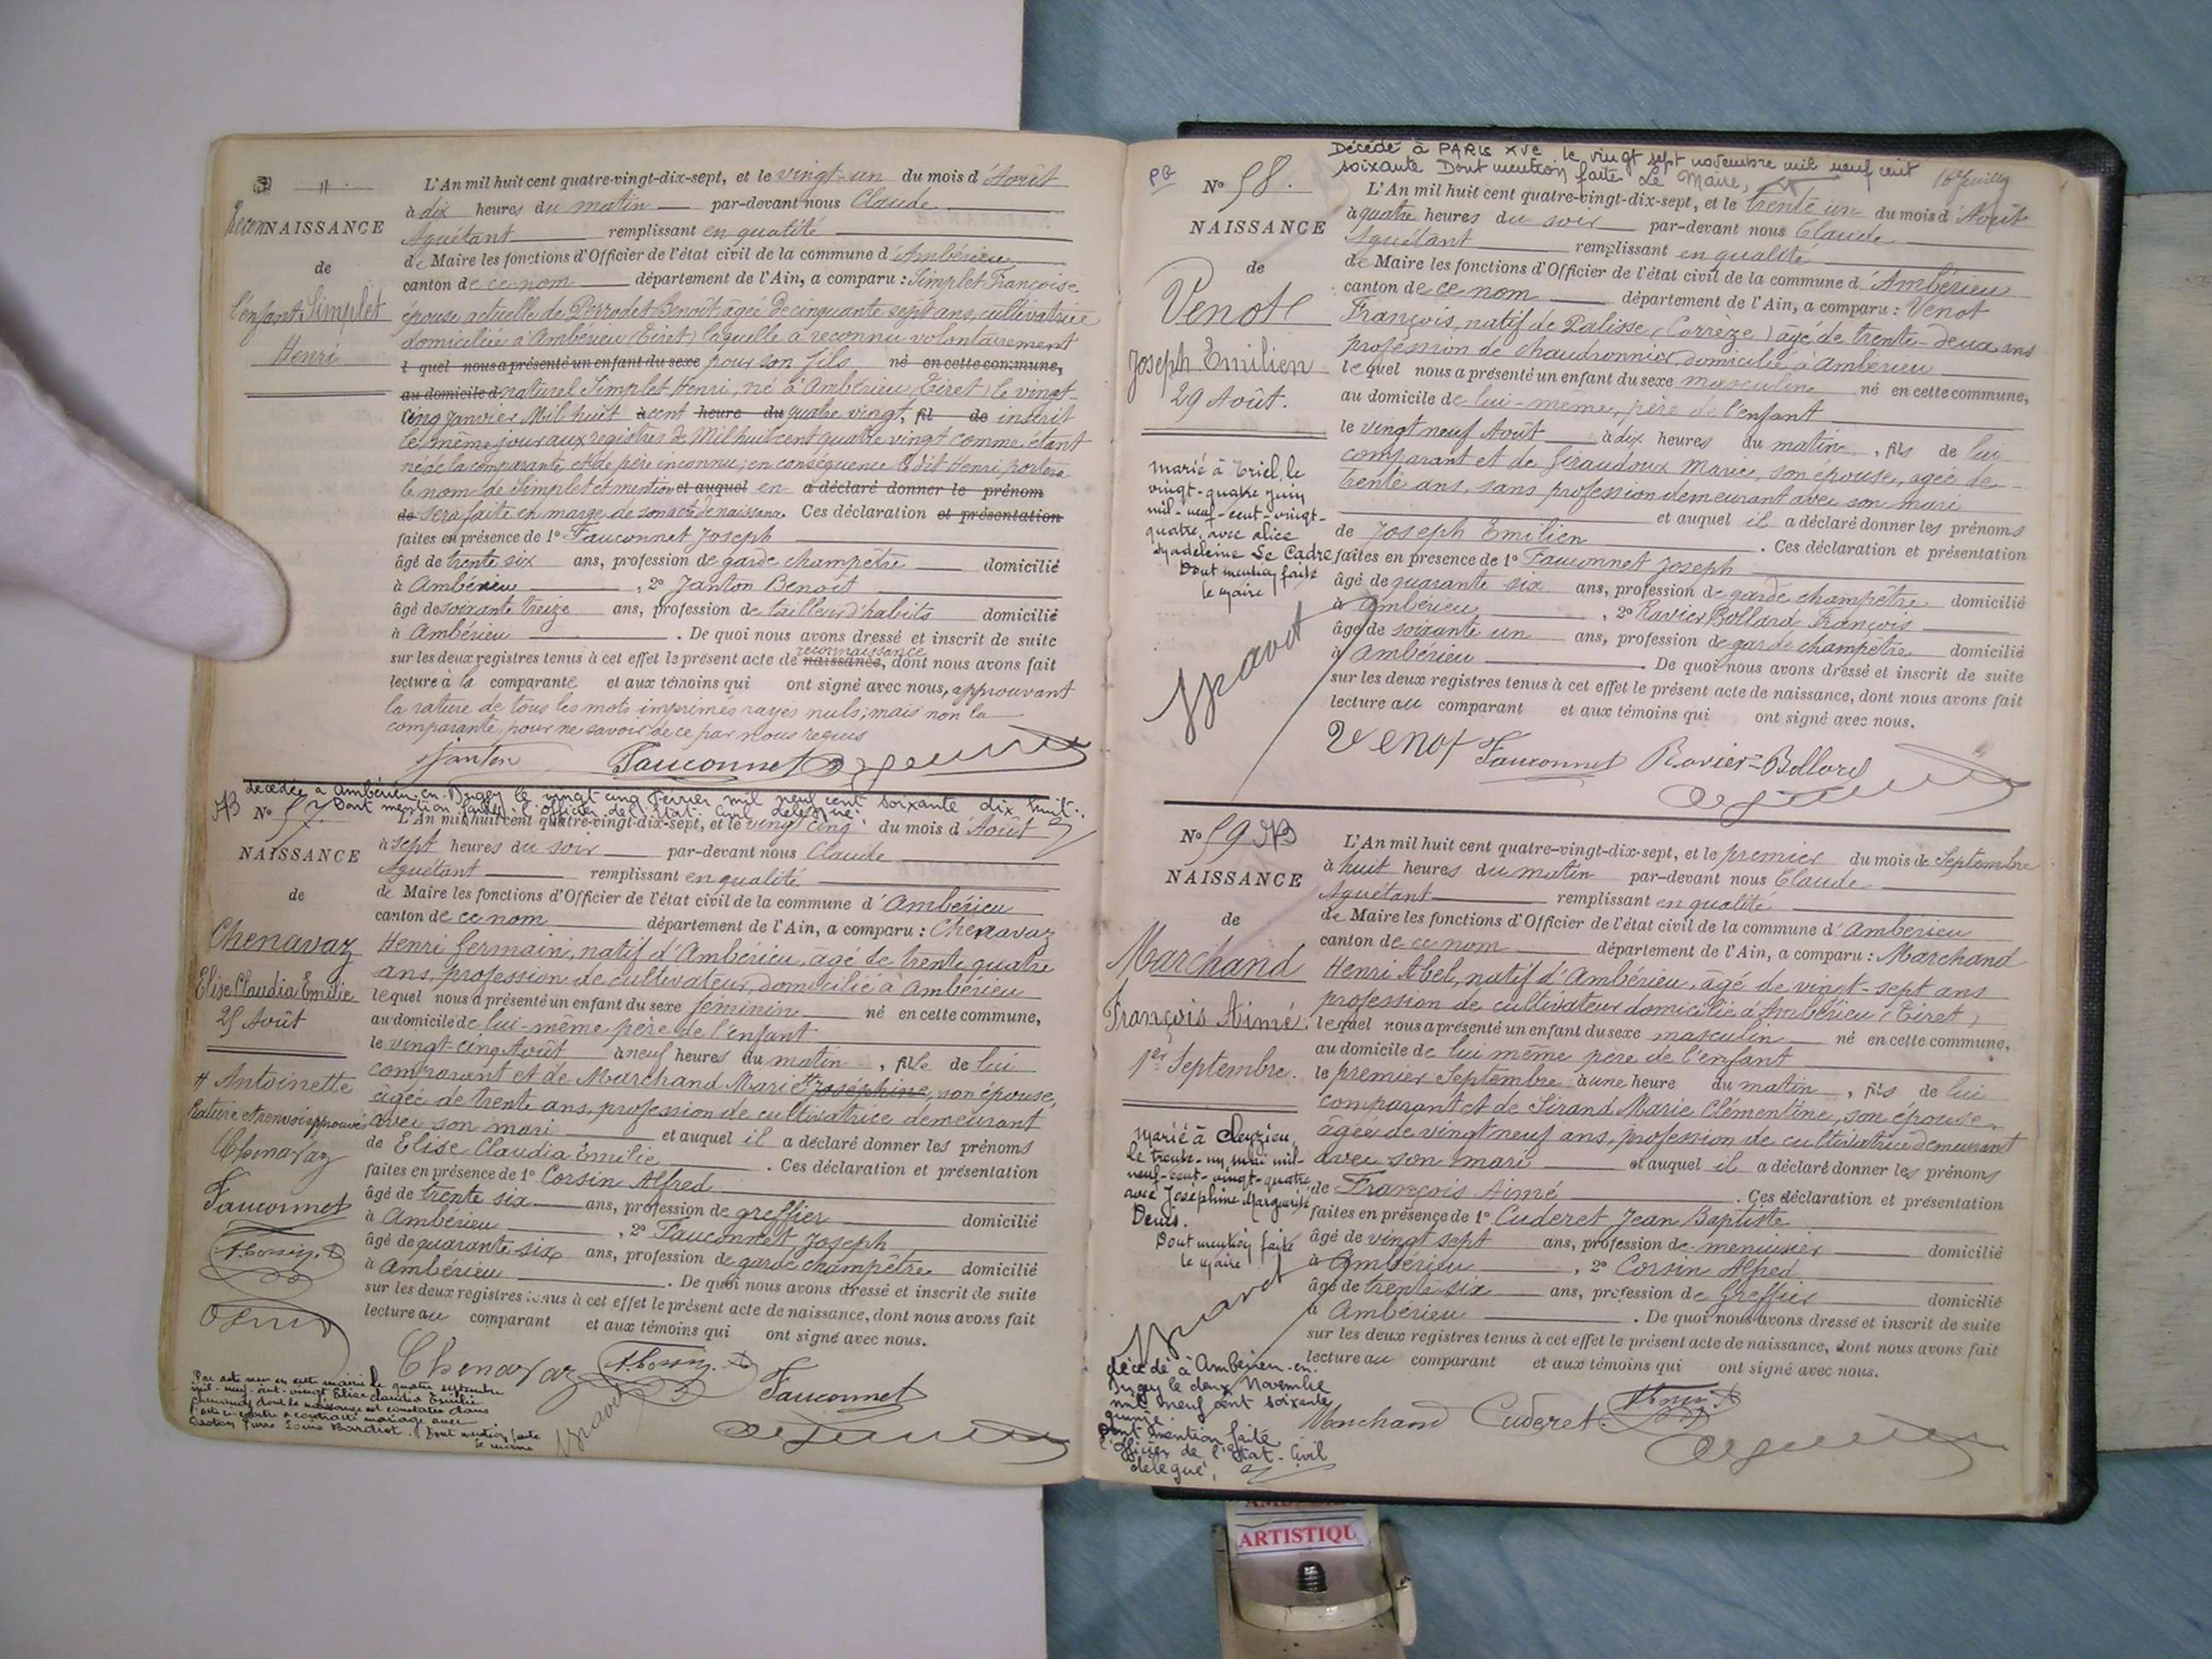 ReconNAISSANCE
de
l'enfant Simplet
Henri
L'An mil huit cent quatre-vingt-dix-sept, et le vingt-un du mois d'Août
à dix heures du matin par-devant nous Claude
Aguétant remplissant en qualité
de Maire les fonctions d'Officier de l'état civil de la commune d'Ambérieu
canton de ce nom département de l'Ain, a comparu : Simplet Françoise
épouse actuelle de Perrodet Benoît âgée de cinquante sept ans, cultivatrice
domiciliée à Ambérieu (Tiret) laquelle a reconnu volontairement
l quel nous a présenté un enfant du sexe pour son fils né en cette commune,
au domicile d naturel Simplet Henri, né à Ambérieu (Tiret) le vingt-
cinq Janvier Mil huit à cent heure du quatre vingt, fil de inscrit
le même jour aux registres de Mil huit cent quatre vingt comme étant
né de la comparante, et de père inconnu ; en conséquence le dit Henri portera
le nom de Simplet et mention et auquel en a déclaré donner le prénom
de sera faite en marge de son acte de naissance. Ces déclaration et présentation
faites en présence de 1° Fauconnet Joseph
âgé de trente six ans, profession de garde champêtre domicilié
à Ambérieu , 2° Janton Benoît
âgé de soixante treize ans, profession de tailleur d'habits domicilié
à Ambérieu . De quoi nous avons dressé et inscrit de suite
reconnaissance
sur les deux registres tenus à cet effet le présent acte de naissance, dont nous avons fait
lecture à la comparante et aux témoins qui ont signé avec nous, approuvant
la rature de tous les mots imprimés rayés nuls ; mais non la
comparante pour ne savoir de ce par nous requis
Janton Fauconnet
décédée à Ambérieu-en-Bugey le vingt cinq Février mil neuf cent soixante dix huit.
Dont mention faite. l'officier de l'Etat Civil délégué.
N° 57.
NAISSANCE
de
Chenavaz
Elise Claudia Emilie
25 Août
# Antoinette
Rature et renvoi approuvé
Chenavaz
Fauconnet
A. Corsin
L'An mil huit cent quatre-vingt-dix-sept, et le vingt cinq du mois d'Août
à sept heures du soir par-devant nous Claude
Aguétant remplissant en qualité
de Maire les fonctions d'Officier de l'état civil de la commune d'Ambérieu
canton de ce nom département de l'Ain, a comparu : Chenavaz
Henri Germain, natif d'Ambérieu, âgé de trente quatre
ans, profession de cultivateur, domicilié à Ambérieu
lequel nous a présenté un enfant du sexe féminin né en cette commune,
au domicile de lui-même père de l'enfant
le vingt-cinq Août à neuf heures du matin , fille de lui
comparant et de Marchand Marie # Joséphine, son épouse,
âgée de trente ans, profession de cultivatrice demeurant
avec son mari et auquel il a déclaré donner les prénoms
de Elise Claudia Emilie . Ces déclaration et présentation
faites en présence de 1° Corsin Alfred
âgé de trente six ans, profession de greffier domicilié
à Ambérieu , 2° Fauconnet Joseph
âgé de quarante six ans, profession de garde champêtre domicilié
à Ambérieu . De quoi nous avons dressé et inscrit de suite
sur les deux registres tenus à cet effet le présent acte de naissance, dont nous avons fait
lecture au comparant et aux témoins qui ont signé avec nous.
Chenavaz A. Corsin Fauconnet
Par acte reçu en cette mairie le quatre septembre
mil-neuf-cent-vingt Elise Claudia Emilie
Chenavaz dont la naissance est constatée dans
l'acte ci-contre a contracté mariage avec
Pierre Louis . Dont mention faite
le maire
Décédé à PARIS XVe le vingt sept novembre mil neuf cent
soixante Dont mention faite Le Maire,
PB
N° 58.
NAISSANCE
de
Venot
Joseph Emilien
29 Août.
marié à Triel, le
vingt-quatre juin
mil-neuf-cent-vingt-
quatre, avec Alice
Madeleine Le Cadre
Dont mention faite
le maire
L'An mil huit cent quatre-vingt-dix-sept, et le trente un du mois d'Août
à quatre heures du soir par-devant nous Claude
Aguétant remplissant en qualité
de Maire les fonctions d'Officier de l'état civil de la commune d'Ambérieu
canton de ce nom département de l'Ain, a comparu : Venot
François, natif de Palisse (Corrèze) âgé de trente-deux ans
profession de chaudronnier domicilié à Ambérieu
lequel nous a présenté un enfant du sexe masculin né en cette commune,
au domicile de lui-même, père de l'enfant
le vingt neuf Août à dix heures du matin , fils de lui
comparant et de Giraudoux Marie, son épouse, agée de
trente ans, sans profession demeurant avec son mari
et auquel il a déclaré donner les prénoms
de Joseph Emilien . Ces déclaration et présentation
faites en présence de 1° Fauconnet Joseph
âgé de quarante six ans, profession de garde champêtre domicilié
à Ambérieu , 2° Ravier Bollard François
âgé de soixante un ans, profession de garde champêtre domicilié
à Ambérieu . De quoi nous avons dressé et inscrit de suite
sur les deux registres tenus à cet effet le présent acte de naissance, dont nous avons fait
lecture au comparant et aux témoins qui ont signé avec nous.
Venot Fauconnet Ravier-Bollard
N° 59
NAISSANCE
de
Marchand
François Aimé.
1er Septembre.
marié à Cleyzieu,
le trente-un mai mil-
neuf-cent-vingt-quatre
avec Joséphine Marguerite
Denis.
Dont mention faite
le maire
décédé à Ambérieu-en-
Bugey le deux Novembre
mil neuf cent soixante
quinze
Dont mention faite
l'Officier de l'Etat-Civil
délégué,
L'An mil huit cent quatre-vingt-dix-sept, et le premier du mois de Septembre
à huit heures du matin par-devant nous Claude
Aguétant remplissant en qualité
de Maire les fonctions d'Officier de l'état civil de la commune d'Ambérieu
canton de ce nom département de l'Ain, a comparu : Marchand
Henri Abel, natif d'Ambérieu, âgé de vingt-sept ans
profession de cultivateur domicilié à Ambérieu (Tiret)
lequel nous a présenté un enfant du sexe masculin né en cette commune,
au domicile de lui même père de l'enfant
le premier Septembre à une heure du matin , fils de lui
comparant et de Sirand Marie Clémentine, son épouse,
âgée de vingt neuf ans, profession de cultivatrice demeurant
avec son mari et auquel il a déclaré donner les prénoms
de François Aimé . Ces déclaration et présentation
faites en présence de 1° Cuderet Jean Baptiste
âgé de vingt sept ans, profession de menuisier domicilié
à Ambérieu , 2° Corsin Alfred
âgé de trente-six ans, profession de Greffier domicilié
à Ambérieu . De quoi nous avons dressé et inscrit de suite
sur les deux registres tenus à cet effet le présent acte de naissance, dont nous avons fait
lecture au comparant et aux témoins qui ont signé avec nous.
Marchand Cuderet A. Corsin
ARTISTIQU